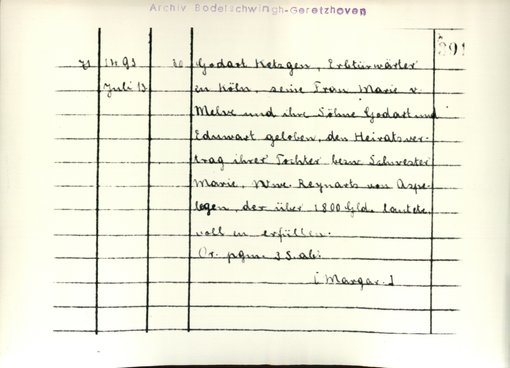 Archiv Bodelschwingh-Geretzhoven
201
71 1491 20 Godart Ketzgen, Erbtürwärter
Juli 13 in Köln, seine Frau Marie v.
Melve und ihre Söhne Godart und
Eduwart geloben, den Heiratsver-
trag ihrer Tochter bezw Schwester
Marie, Wwe. Reynarts von Aspe-
legen, der über 1800 Gld. lautete,
voll zu erfüllen.
Or. pgm. 3 S. ab.
[Margar.]